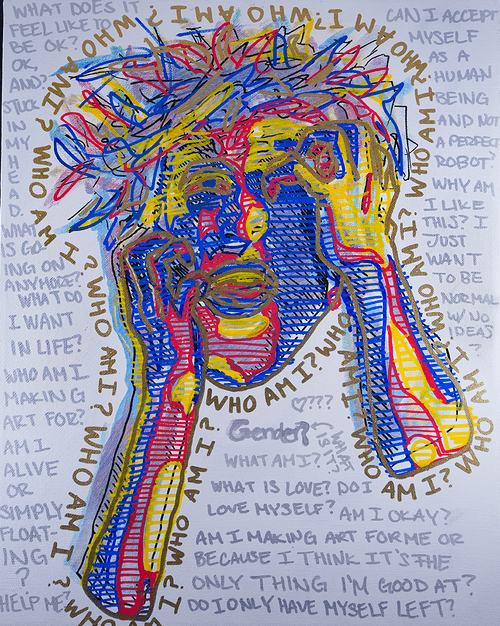 WHAT DOES IT
FEEL LIKE TO
BE OK?
OK,
AND?
STUCK
IN
MY
H
E
A
D.
WHAT
IS GO-
ING ON
ANYMORE?
WHAT DO
I WANT
IN LIFE?
WHO AM I
MAKING
ART FOR?
AM I
ALIVE
OR
SIMPLY
FLOAT-
ING
?
HELP ME?
CAN I ACCEPT
MYSELF
AS A
HUMAN
BEING
AND NOT
A PERFECT
ROBOT?
WHY AM
I LIKE
THIS? I
JUST
WANT
TO BE
NORMAL
W/ NO
IDEAS
?
WHO AM I? WHO AM I? WHO AM I? WHO AM I? WHO AM I? WHO AM I? WHO AM I? WHO AM I? WHO AM I? WHO AM I? WHO AM I? WHO AM I?
♡????
Gender?
WHAT AM I?
WHAT IS LOVE? DO I
LOVE MYSELF? AM I OKAY?
AM I MAKING ART FOR ME OR
BECAUSE I THINK IT'S THE
ONLY THING I'M GOOD AT?
DO I ONLY HAVE MYSELF LEFT?